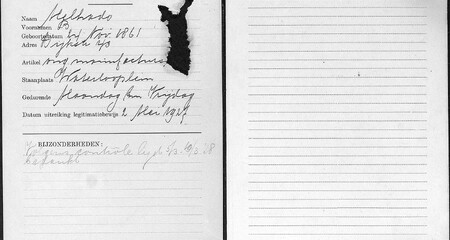 Naam Melhado
Voornamen B
Geboortedatum 24 Nov. 1861
Adres
Artikel ong. manufacturen
Staanplaats Waterlooplein
Gedurende Maandag t/m Vrijdag
Datum uitreiking legitimatiebewijs 2 Mei 1927
BIJZONDERHEDEN:
controle